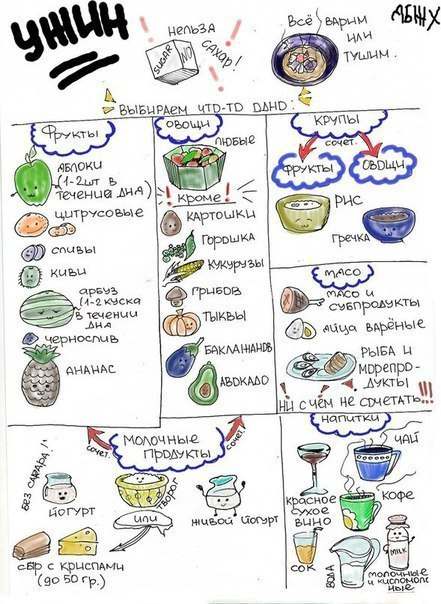 УЖИН
НЕЛЬЗЯ
САХАР!
SUGAR
NO
ВСЁ ВАРИМ
ИЛИ
ТУШИМ.
ВЫБИРАЕМ ЧТО-ТО ОДНО:
ФРУКТЫ
ЯБЛОКИ
(1-2 ШТ В
ТЕЧЕНИИ ДНЯ)
ЦИТРУСОВЫЕ
СЛИВЫ
КИВИ
АРБУЗ
(1-2 КУСКА
В ТЕЧЕНИИ
ДНЯ
ЧЕРНОСЛИВ
АНАНАС
ОВОЩИ
ЛЮБЫЕ
! КРОМЕ !
КАРТОШКИ
ГОРОШКА
КУКУРУЗЫ
ГРИБОВ
ТЫКВЫ
БАКЛАЖАНОВ
АВОКАДО
КРУПЫ
СОЧЕТ.
ФРУКТЫ
ОВОЩИ
РИС
ГРЕЧКА
МЯСО
МЯСО И
СУБПРОДУКТЫ
ЯЙЦА ВАРЁНЫЕ
РЫБА И
МОРЕПРО-
ДУКТЫ
НИ С ЧЕМ НЕ СОЧЕТАТЬ!!!
СОЧЕТ.
МОЛОЧНЫЕ
ПРОДУКТЫ
СОЧЕТ.
БЕЗ САХАРА!
ЙОГУРТ
ТВОРОГ
ИЛИ
ЖИВОЙ ЙОГУРТ
СЫР С КРИСПАМИ
(ДО 50 ГР.)
НАПИТКИ
ЧАЙ
КРАСНОЕ
СУХОЕ
ВИНО
КОФЕ
СОК
ВОДА
MILK
МОЛОЧНЫЕ
И КИСЛОМОЛОЧ
НЫЕ